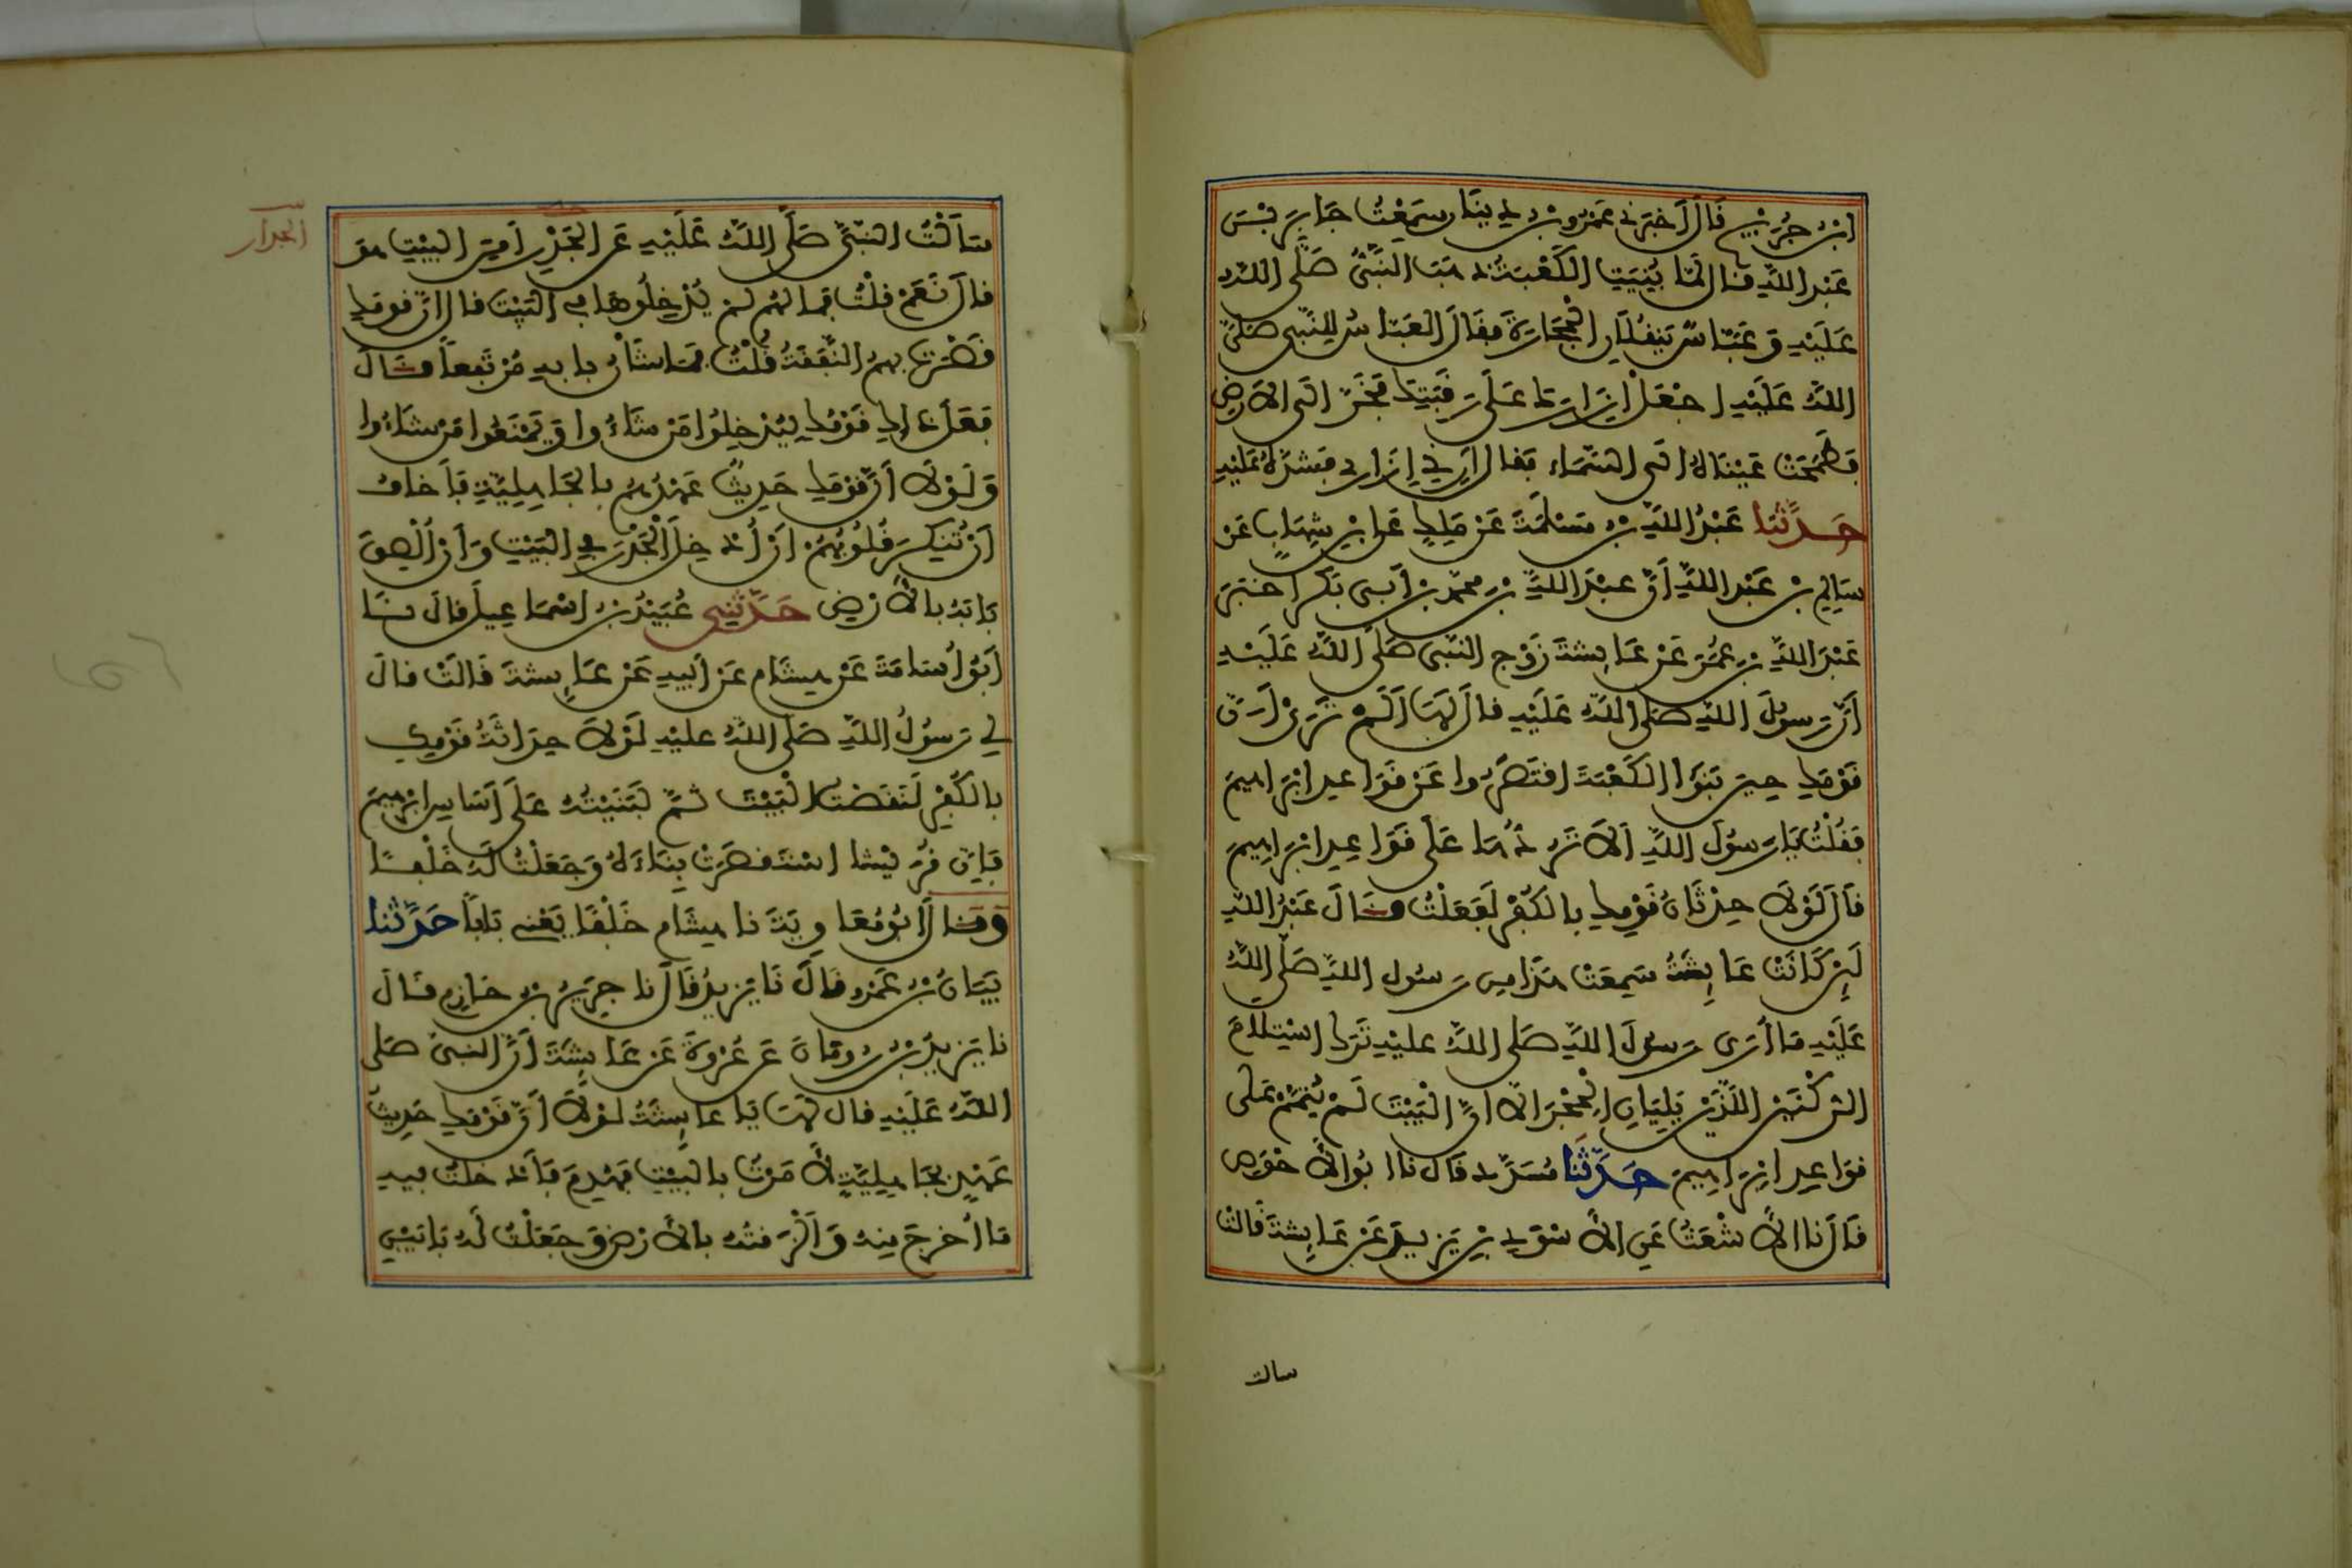 ابن جريج قال أخبرني عمرو بن دينار سمعت جابر بن
عبد الله قال لما بنيت الكعبة ذهب النبي صلى الله
عليه وعباس ينقلان الحجارة فقال العباس للنبي صلى
الله عليه اجعل إزارك على رقبتك فخر الى الارض
فطمحت عيناه الى السماء فقال أرني إزاري فشده عليه
حدثنا عبد الله بن مسلمة عن ملك عن ابن شهاب عن
سالم بن عبد الله أن عبد الله بن محمد بن أبي بكر اخبر
عبد الله بن عمر عن عايشة زوج النبي صلى الله عليه
أن رسول الله صلى الله عليه قال لها ألم تري أن
قومك حين بنوا الكعبة اقتصروا عن قواعد ابراهيم
فقلت يا رسول الله ألا تردها على قواعد ابراهيم
قال لولا حدثان قومك بالكفر لفعلت وقال عبد الله
لين كانت عايشة سمعت هذا من رسول الله صلى الله
عليه ما أرى رسول الله صلى الله عليه ترك استلام
الركنين اللذين يليان الحجر الا ان البيت لم يتمم على
قواعد ابراهيم حدثنا مسدد قال نا ابو الأحوص
قال نا الأشعث عن الأسود بن يزيد عن عايشة قالت
سالت
الجدار
سألت النبي صلى الله عليه عن الجدر أمن البيت هو
قال نعم قلت فما لهم لم يدخلوها في البيت قال ان قومك
قصرت بهم النفقة قلت فما شان بابه مرتفعا قال
فعل ذلك قومك ليدخلوا من شاءوا ويمنعوا من شاءوا
ولولا أن قومك حديث عهدهم بالجاهلية فأخاف
أن تنكر قلوبهم أن أدخل الجدر في البيت وأن ألصق
بابه بالأرض حدثني عبيد بن اسماعيل قال نا
أبو أسامة عن هشام عن أبيه عن عايشة قالت قال
لي رسول الله صلى الله عليه لولا حداثة قومك
بالكفر لنقضت البيت ثم لبنيته على أساس ابراهيم
فإن قريشا استقصرت بناءه وجعلت له خلفا
وقال أبو معاوية نا هشام خلفا يعني بابا حدثنا
بيان بن عمرو قال نا يزيد قال نا جرير بن حازم قال
نا يزيد بن رومان عن عروة عن عايشة أن النبي صلى
الله عليه قال لها يا عايشة لولا أن قومك حديث
عهد بجاهلية لأمرت بالبيت فهدم فأدخلت فيه
ما أخرج منه وألزقته بالأرض وجعلت له بابين